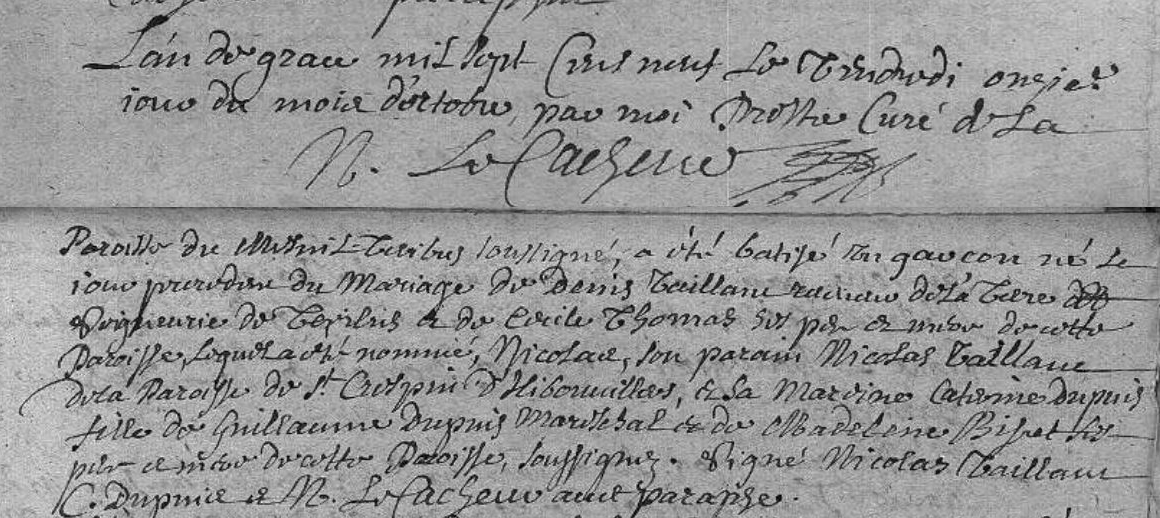 paraphe
L'an de grace mil sept Cens neuf Le Vendredi onzie.e
iour du mois d'octobre, par moi Prestre Curé de La
N. Le Cacheur
Paroisse du Mesnil-Teribus soussigné, a été batisé un garcon né Le
iour precedent du Mariage de Denis Vaillant receveur de la Terre
Seigneurie de Teribus et de Cecile Thomas ses per et mere de cette
Paroisse, lequel a été nommé, Nicolas, son parain Nicolas Vaillant
de la Paroisse de St Crespin d'Hibouvillers, et sa Mareine Caterine Dupuis
fille de Guillaume Dupuis Mareschal et de Madeleine Biset ses
per et mere de cette Paroisse, soussignez. Signé Nicolas Vaillant
C. Dupuis et N. Le Cacheur avec paraphe.